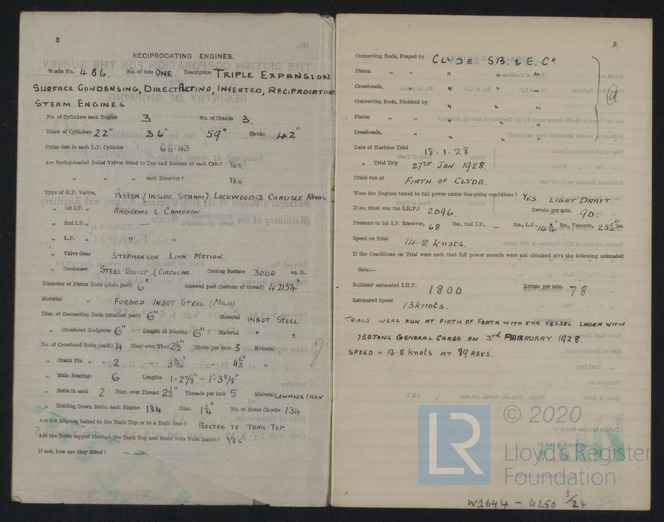 2
RECIPROCATING ENGINES.
Works No. 486. No. of Sets ONE Description TRIPLE EXPANSION
SURFACE CONDENSING, DIRECT ACTING, INVERTED, RECIPROCATING
STEAM ENGINES
No. of Cylinders each Engine 3 No. of Cranks 3.
Diars. of Cylinders 22" 36" 59" Stroke 42"
Cubic feet in each L.P. Cylinder 66.43
Are Spring-loaded Relief Valves fitted to Top and Bottom of each Cylr.? YES.
" " " each Receiver? YES.
Type of H.P. Valves, PISTON (INSIDE STEAM) LOCKWOOD & CARLISLE
" 1st I.P. " ANDREWS & CAMERON
" 2nd I.P. " —
" L.P. " "
" Valve Gear STEPHENSON LINK MOTION.
" Condenser STEEL BUILT (CIRCULAR Cooling Surface 3000 sq. ft.
Diameter of Piston Rods (plain part) 6" Screwed part (bottom of thread)
Material FORGED INGOT STEEL (MILD)
Diar. of Connecting Rods (smallest part) 6" Material INGOT STEEL
" Crosshead Gudgeons 6" Length of Bearing 6" Material "
No. of Crosshead Bolts (each) 4 Diar. over Thrd. 2½" Thrds. per inch 5 Material
" Crank Pin " 2 " 3¾" 4½ "
" Main Bearings 6 Lengths 1-2⅞" - 1'-3⅝"
" Bolts in each 2 Diar. over Thread 2½" Threads per inch 5 Material LOWMOOR IRON
" Holding Down Bolts, each Engine 134 Diar. 1¼" No. of Metal Chocks 134
Are the Engines bolted to the Tank Top or to a Built Seat? BOLTED TO TANK TOP
Are the Bolts tapped through the Tank Top and fitted with Nuts Inside? YES
If not, how are they fitted? —
3
Connecting Rods, Forged by CLYDE S.B. & E. Co.
Piston " " " " "
Crossheads, " " " "
Connecting Rods, Finished by " " "
Piston " " " " "
Crossheads, " " " "
Date of Harbour Trial 18.1.28
" Trial Trip 27TH JAN 1928.
Trials run at FIRTH OF CLYDE.
Were the Engines tested to full power under Sea-going conditions? YES. LIGHT DRAFT.
If so, what was the I.H.P.? 2096 Revols. per min. 90.
Pressure in 1st I.P. Receiver, 68 lbs., 2nd I.P., — lbs., L.P., lbs., Vacuum, 25½ ins.
Speed on Trial 14.2 knots.
If the Conditions on Trial were such that full power records were not obtained give the following estimated
data:—
Builders' estimated I.H.P. 1800 Revols. per min. 78
Estimated Speed 13 knots.
TRIALS WERE RUN AT FIRTH OF FORTH WITH THE VESSEL LADEN WITH
750 TONS GENERAL CARGO ON 3rd FEBRUARY 1928.
SPEED = 13.8 knots AT 89 REVS.
LR
© 2020
Lloyd's Register
Foundation
W1644 - 0250 3/24